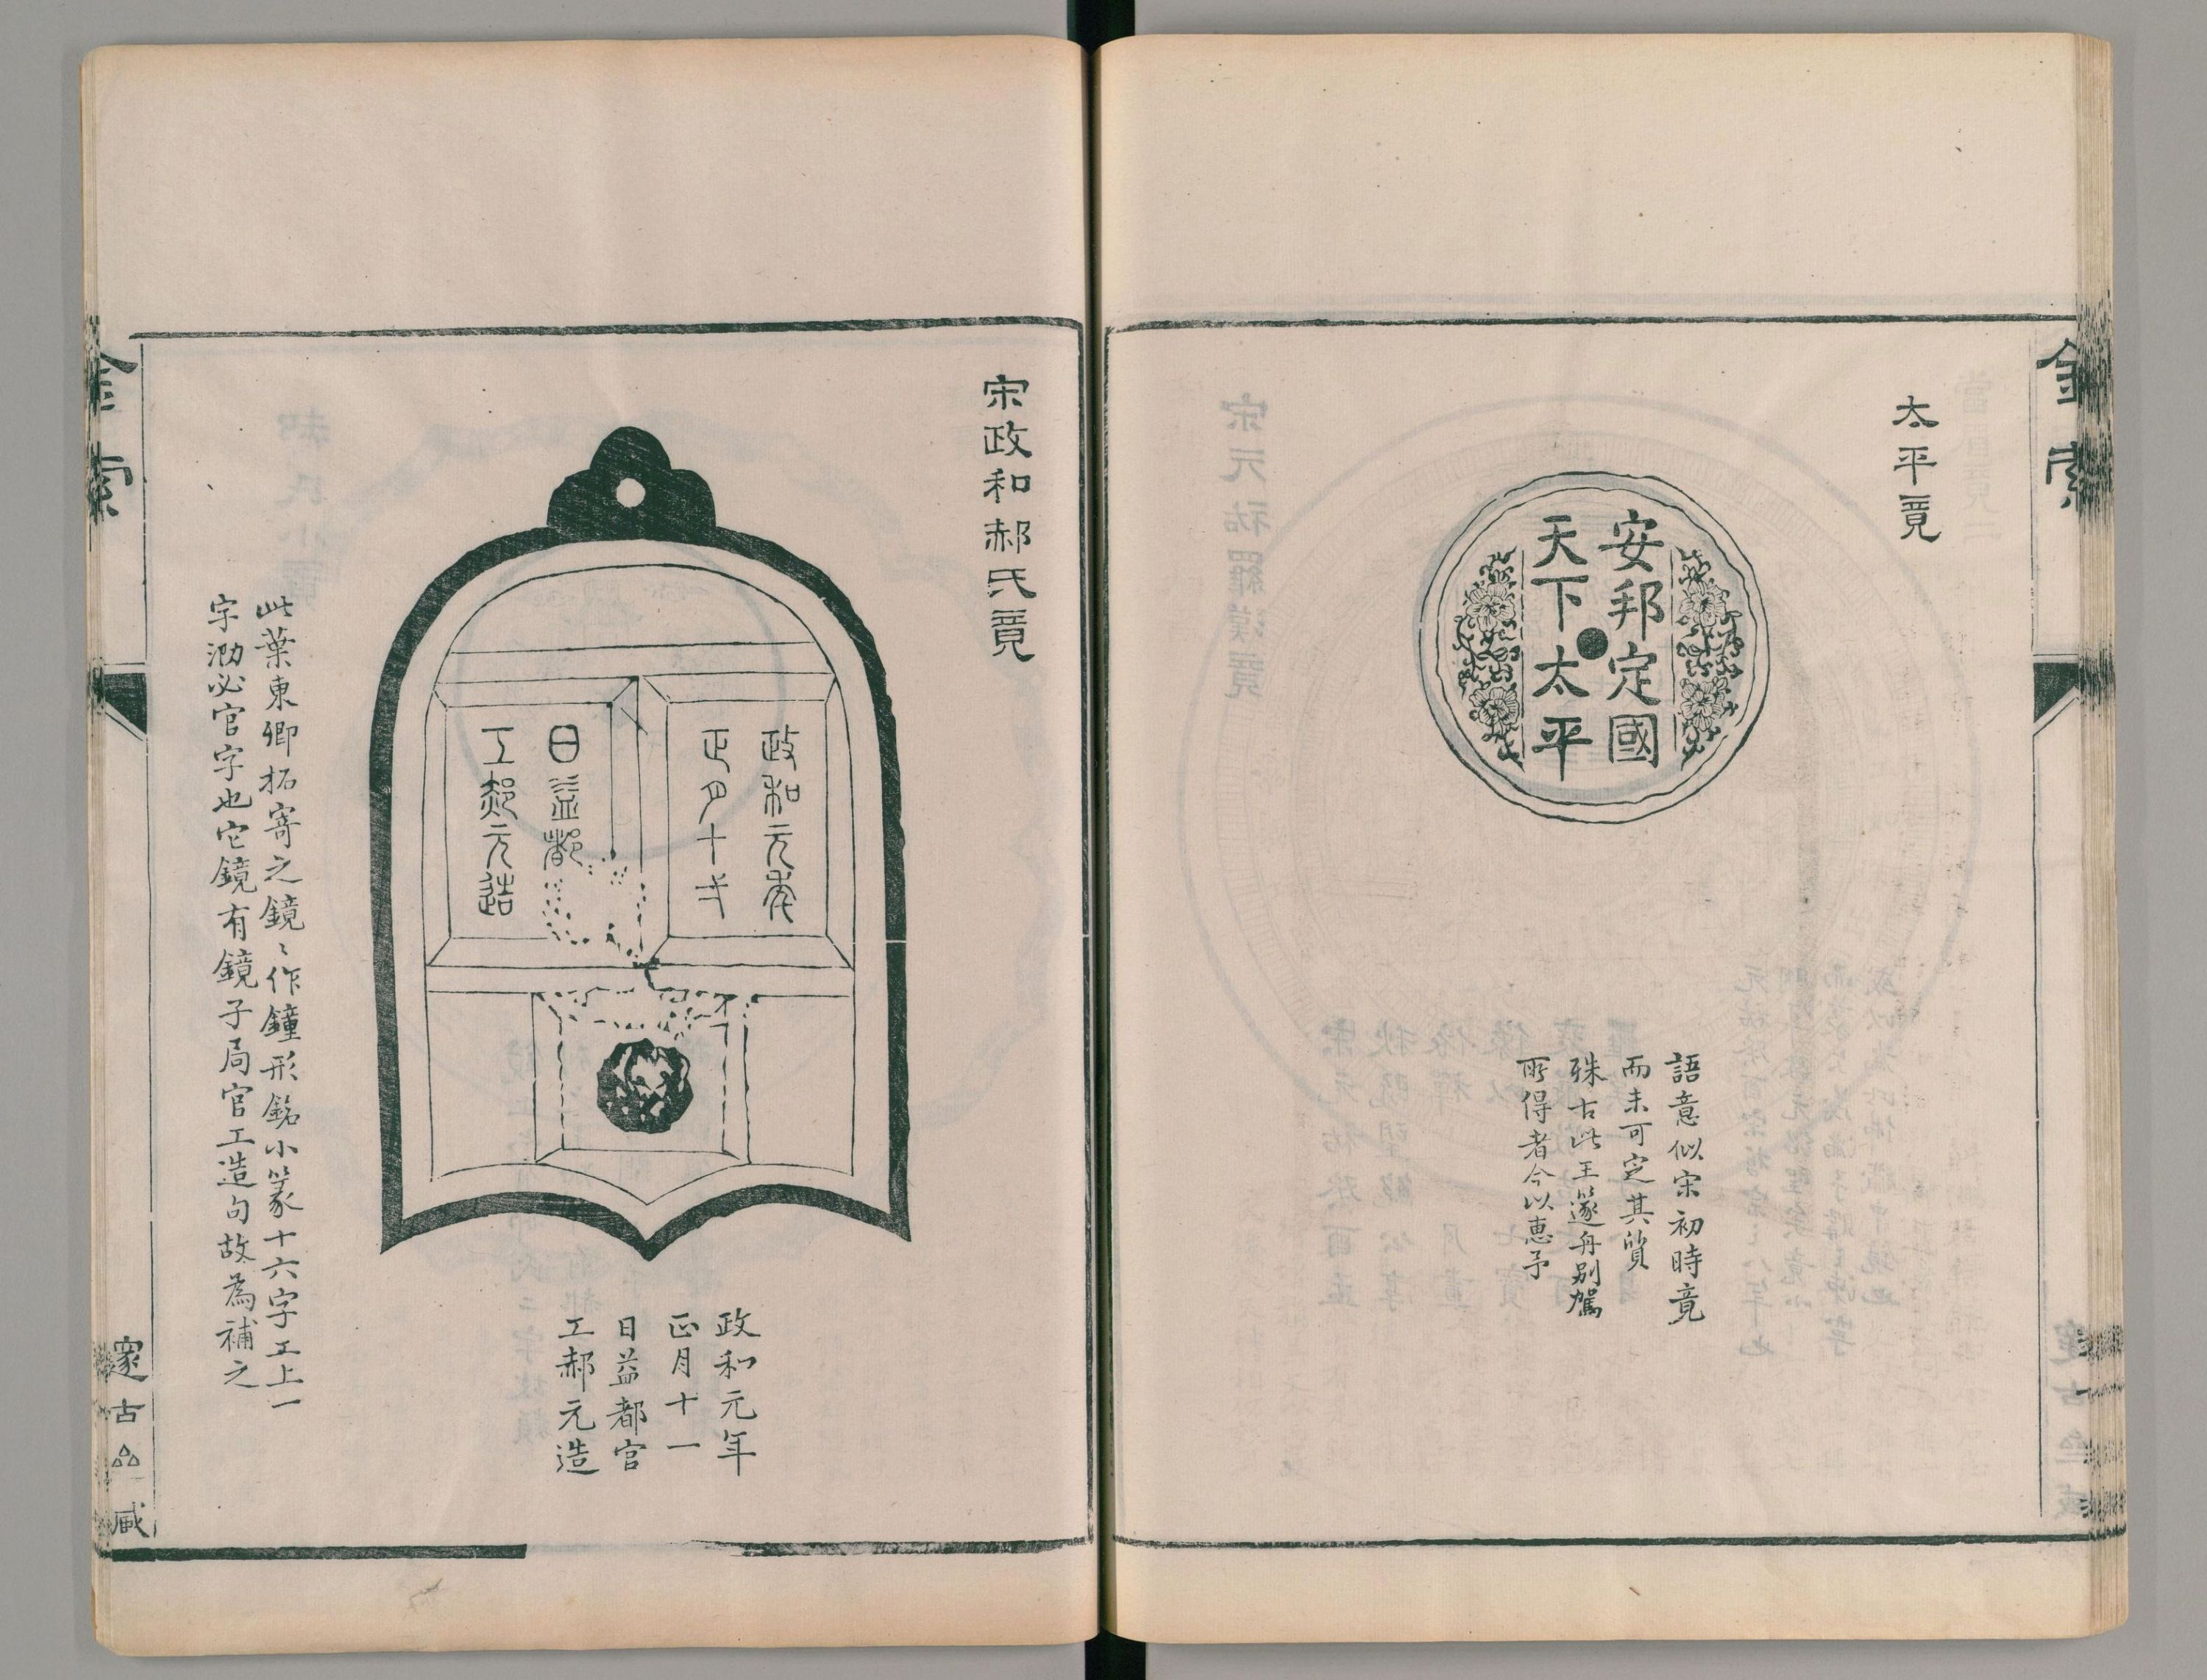 金索
太平竟
安邦定國
天下太平
語意似宋初時竟
而未可定其質
殊古此王蓬舟別駕
所得者今以惠予
宋政和郝氏竟
政和元年
正月十一
日益都
工郝元造
政和元年
正月十一
日益都官
工郝元造
此葉東卿拓寄之鏡〻作鐘形銘小篆十六字工上一
字泐必官字也它鏡有鏡子局官工造句故為補之
金索
邃古
藏